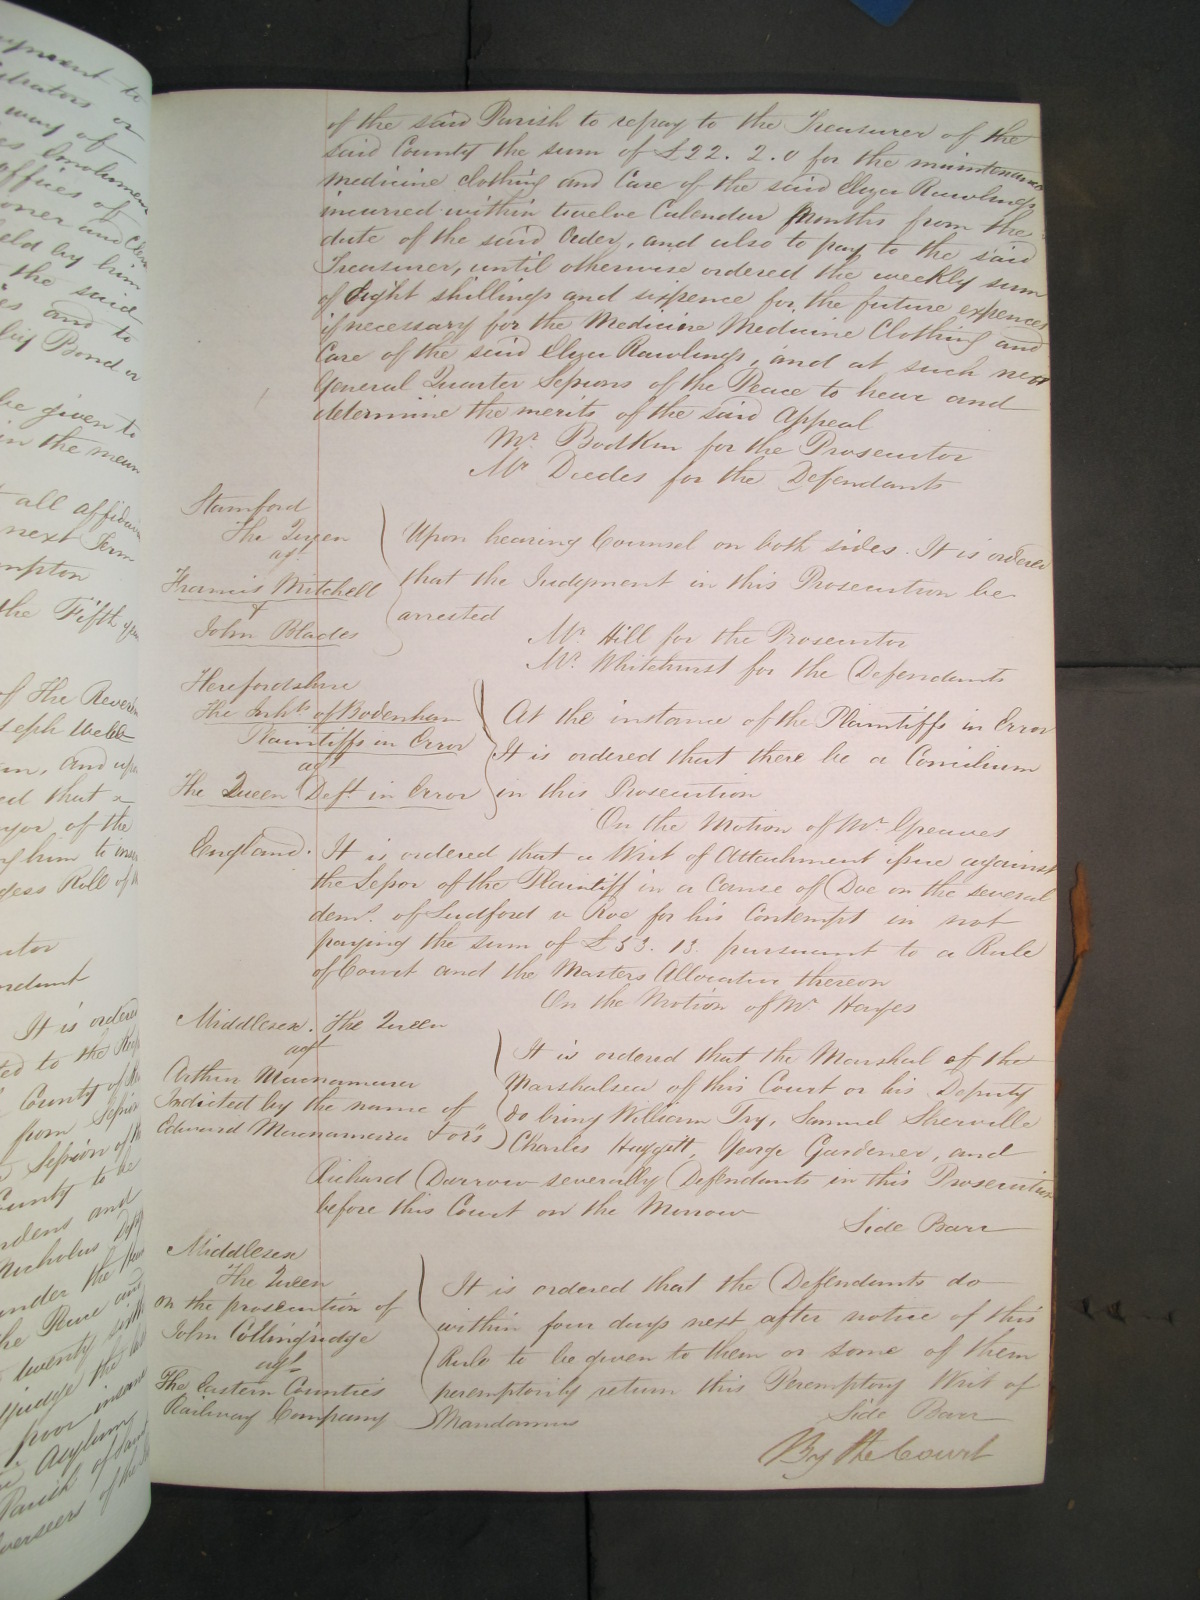 of the said Parish to repay to the Treasurer of the
said County the sum of £22. 2. 0 for the maintenance
Medicine clothing and Care of the said Elyza Rawlings
incurred within twelve Calendar Months from the
date of the said Order, and also to pay to the said
Treasurer, until otherwise ordered the weekly sum
of Eight shillings and sixpence for the future expences
if necessary for the Medicine Medicine Clothing and
Care of the said Elyza Rawlings, and at such next
General Quarter Sessions of the Peace to hear and
determine the merits of the said Appeal
Mr. Bodkin for the Prosecutor
Mr Deedes for the Defendants
Stamford
The Queen
agt
Francis Mitchell
&
John Blades
Upon hearing Counsel on both sides. It is ordered
that the Judgment in this Prosecution be
arrested
Mr. Hill for the Prosecutor
Mr. Whitehurst for the Defendants
Herefordshire
The Inhts of Bodenham
Plaintiffs in Error
agt
The Queen Deft in Error
At the instance of the Plaintiffs in Error
It is ordered that there be a Concilium
in this Prosecution
On the Motion of Mr Greaves
England. It is ordered that a Writ of Attachment issue against
the Lessor of the Plaintiff in a Cause of Doe on the several
demes. of Ludford v Roe for his Contempt in not
paying the sum of £53. 13. pursuant to a Rule
of Court and the Masters Allocatur thereon
On the Motion of Mr Hayes
Middlesex. The Queen
agt
Arthur Macnamara
Indicted by the name of
Edward Macnamara & ors
It is ordered that the Marshal of the
Marshalsea of this Court or his Deputy
do bring William Try, Samuel Sherville
Charles Huggett, George Gardener, and
Richard Darrow severally Defendants in this Prosecution
before this Court on the Morrow
Side Barr
Middlesex
The Queen
on the prosecution of
John Collingridge
agt
The Eastern Counties
Railway Company
It is ordered that the Defendants do
within four days next after notice of this
Rule to be given to them or some of them
peremptorily return this Peremptory Writ of
Mandamus
Side Barr
By the Court